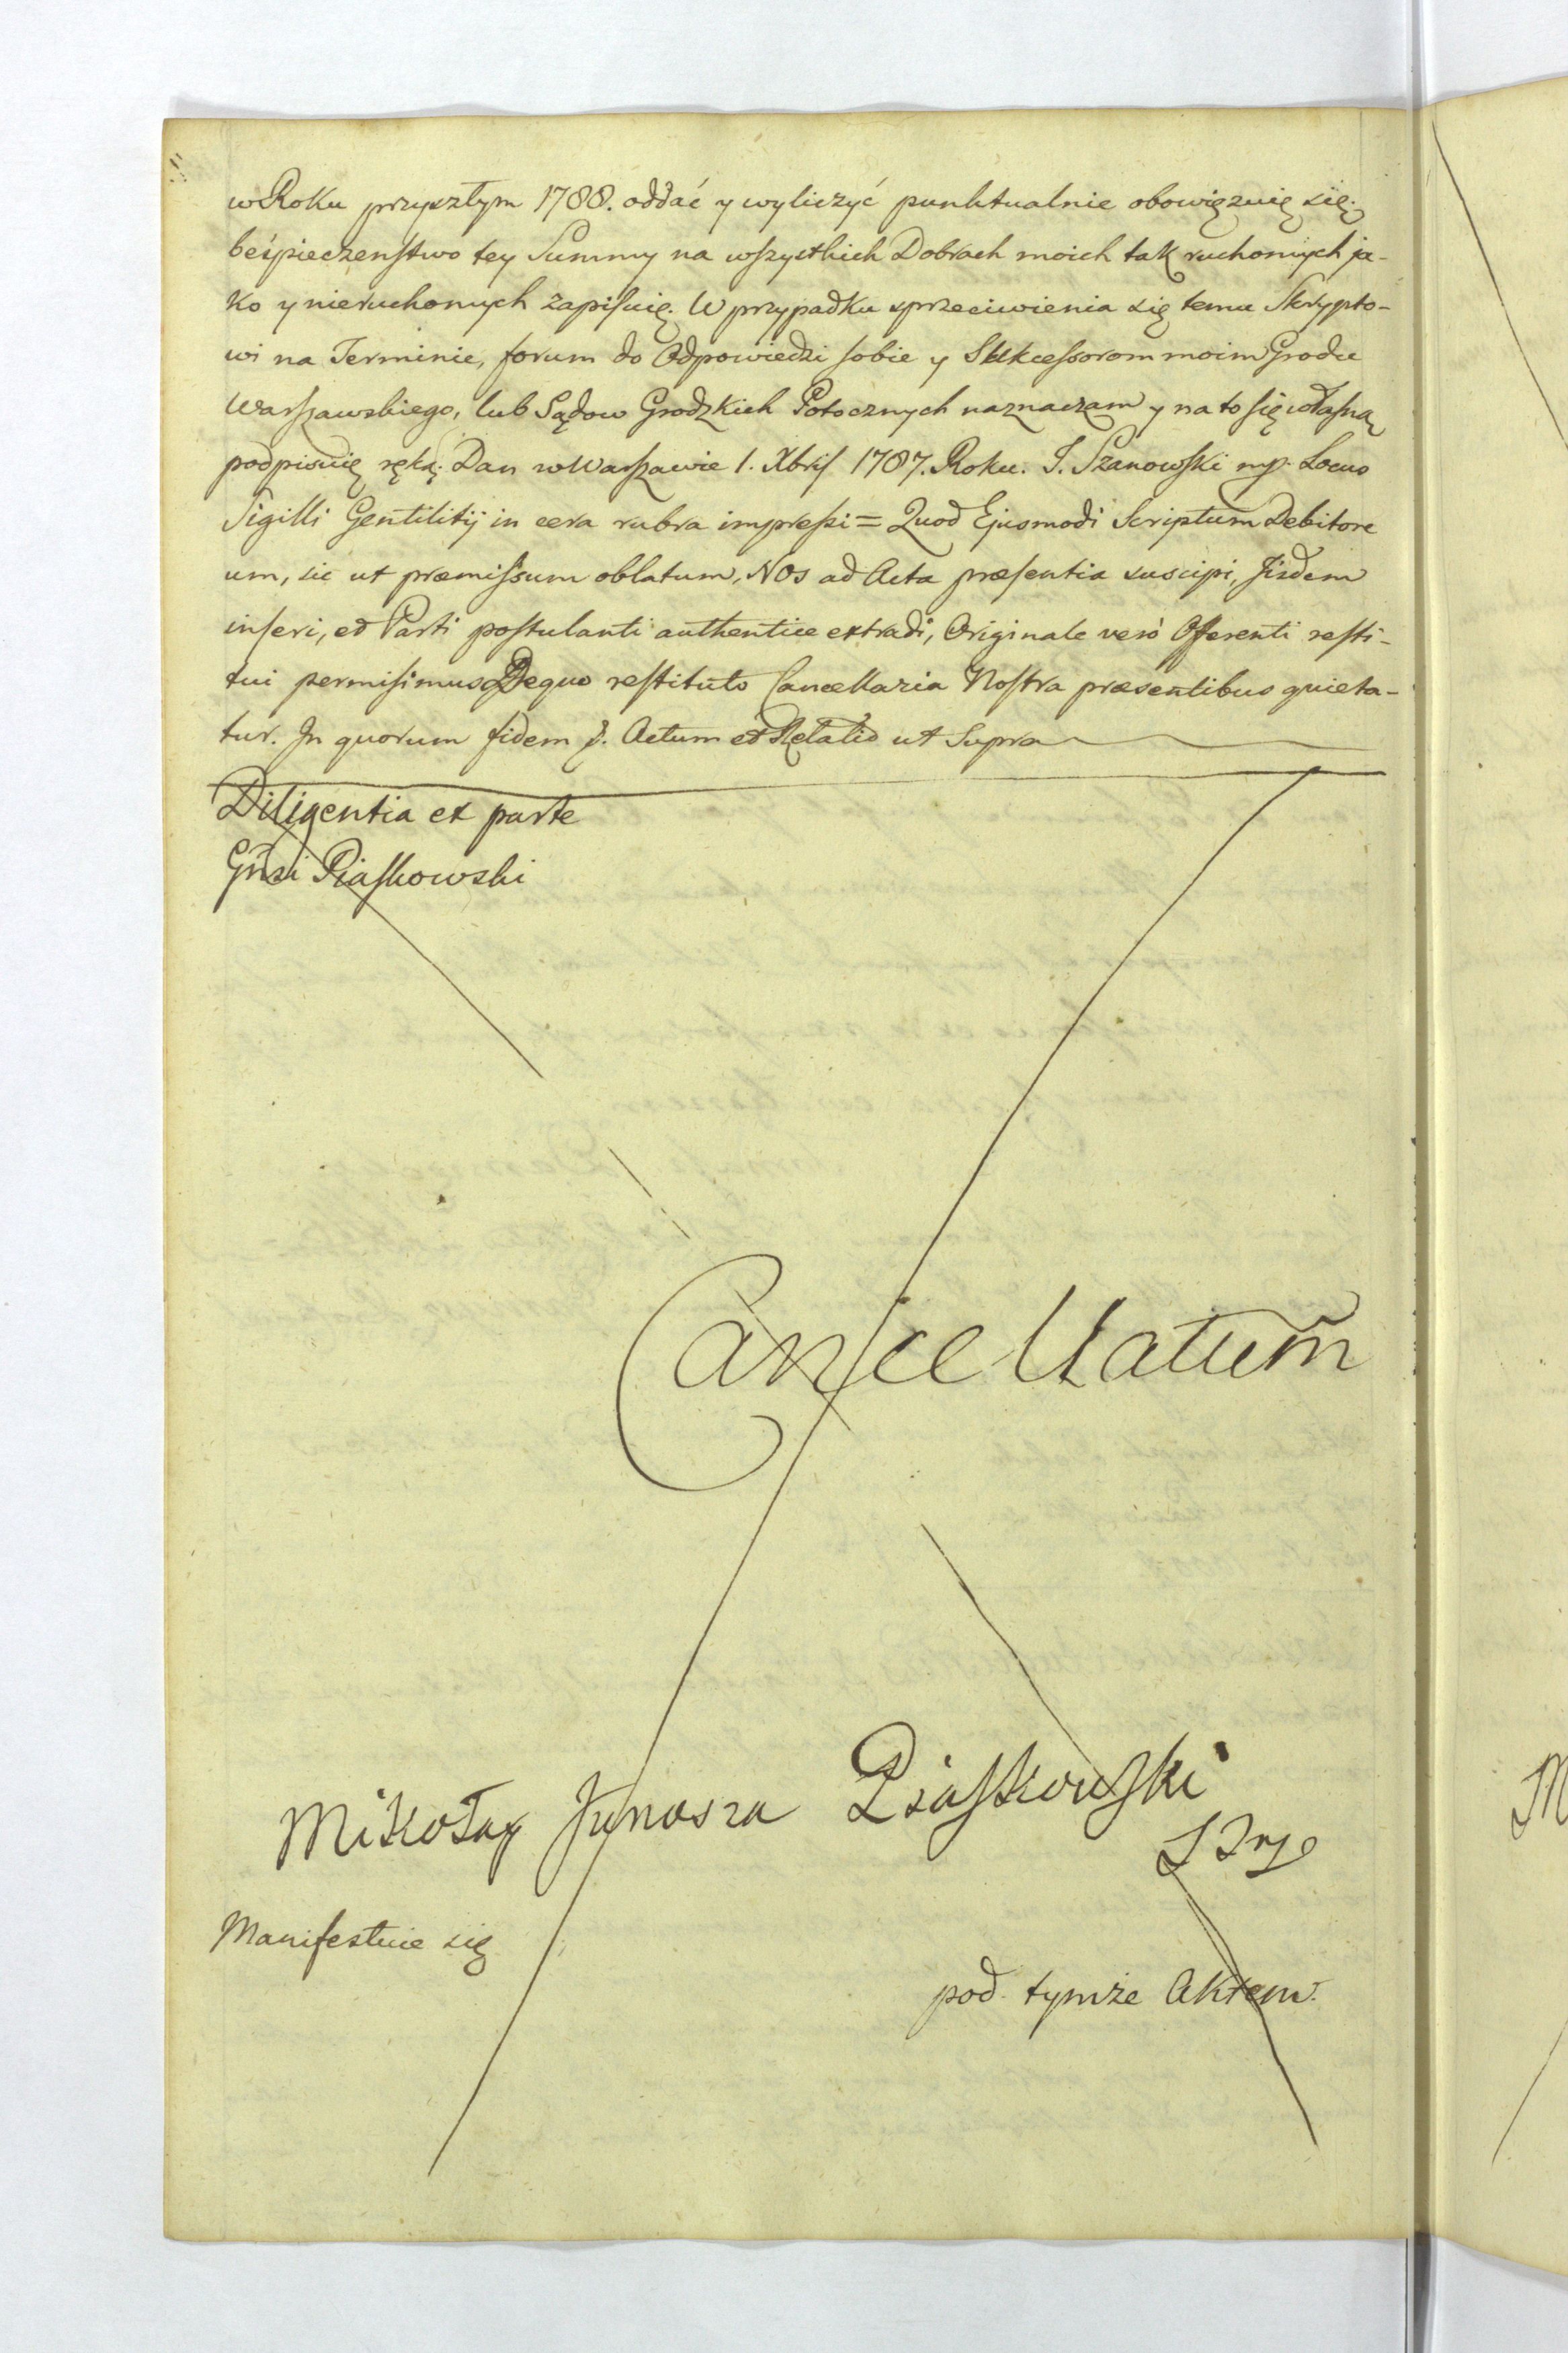 w Roku przyszłym 1788. oddać y wyliczyć punktualnie obowięzuię się.
beśpieczenstwo tey Summy na wszystkich Dobrach moich tak ruchomych ja-
ko y nieruchomych zapisuię. W przypadku sprzeciwienia się temu Skrypto-
wi na Terminie, forum do Odpowiedzi sobie y Sukcessorom moim Grodu
Warszawskiego, lub Sądow Grodzkich Potocznych naznaczam y na to się własną
podpisuię ręką. Dan w Warszawie 1. Xbris 1787. Roku. J. Szanowski mp. Locus
Sigilli Gentilitij in cera rubra impressi = Quod Ejusmodi Scriptum Debitore
um, sic ut præmissum oblatum, Nos ad Acta præsentia suscipi, Jisdem
inseri, et Parti postulanti authentice extradi, Originale verò Offerenti resti-
tui permisimus De quo restituto Cancellaria Nostra præsentibus quieta-
tur. In quorum fidem p. Actum et Relatio ut Supra
Diligentia ex parte
Gñsi Piaskowski
Cancellatum
Mikołay Junosza Piaskowski
Manifestuie się
pod tymże Aktem.